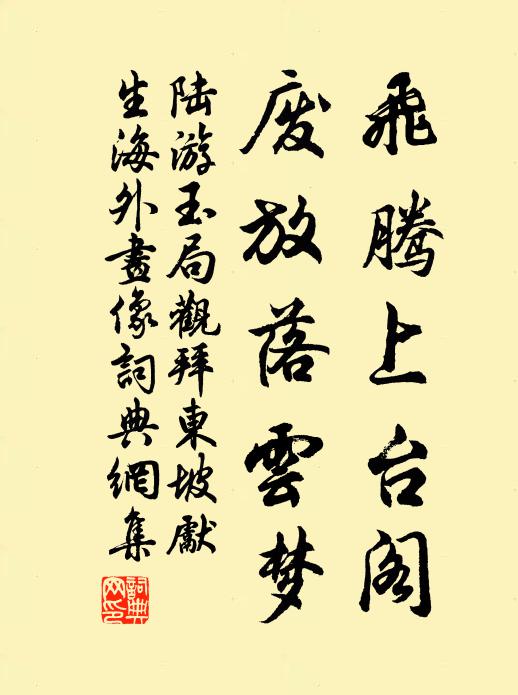 飛騰上台阁
废放落雲梦
陆游玉局觀拜東坡獻
生海外畫像詞典網集
詞典
网印